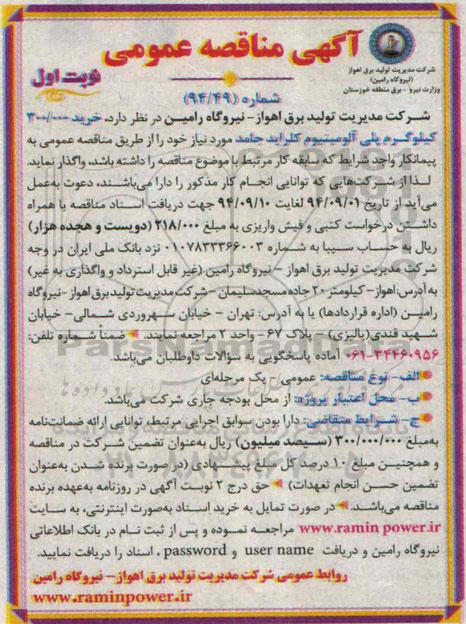 آگهی مناقصه عمومی
شرکت مدیریت تولید برق اهواز
(نیروگاه رامین)
وزارت نیرو - برق منطقه خوزستان
نوبت اول
شماره (۹۴/۴۹)
شرکت مدیریت تولید برق اهواز - نیروگاه رامین در نظر دارد، خرید ۳۰۰/۰۰۰
کیلوگرم پلی آلومینیوم کلراید جامد مورد نیاز خود را از طریق مناقصه عمومی به
پیمانکار واجد شرایط که سابقه کار مرتبط با موضوع مناقصه را داشته باشد، واگذار نماید.
لذا از شرکت‌هایی که توانایی انجام کار مذکور را دارا می‌باشند، دعوت به‌عمل
می‌آید از تاریخ ۹۴/۰۹/۰۱ لغایت ۹۴/۰۹/۱۰ جهت دریافت اسناد مناقصه با همراه
داشتن درخواست کتبی و فیش واریزی به مبلغ ۲۱۸/۰۰۰ (دویست و هجده هزار)
ریال به حساب سیبا به شماره ۰۱۰۷۸۳۳۳۶۶۰۰۳ نزد بانک ملی ایران در وجه
شرکت مدیریت تولید برق اهواز - نیروگاه رامین (غیر قابل استرداد و واگذاری به غیر)
به آدرس: اهواز - کیلومتر ۲۰ جاده مسجدسلیمان - شرکت مدیریت تولید برق اهواز - نیروگاه
رامین (اداره قراردادها) یا به آدرس: تهران - خیابان سهروردی شمالی - خیابان
شهید قندی (پالیزی) - پلاک ۶۷ - واحد ۲ مراجعه نمایند. ضمناً شماره تلفن:
۰۶۱-۳۴۴۶۰۹۵۶ آماده پاسخگویی به سؤالات داوطلبان می‌باشد.
الف - نوع مناقصه: عمومی - یک مرحله‌ای
ب - محل اعتبار پروژه: از محل بودجه جاری شرکت می‌باشد.
ج - شرایط متقاضی: دارا بودن سوابق اجرایی مرتبط، توانایی ارائه ضمانت‌نامه
به‌مبلغ ۳۰۰/۰۰۰/۰۰۰ (سیصد میلیون) ریال به‌عنوان تضمین شرکت در مناقصه
و همچنین مبلغ ۱۰ درصد کل مبلغ پیشنهادی (در صورت برنده شدن به‌عنوان
تضمین حسن انجام تعهدات) حق درج ۲ نوبت آگهی در روزنامه به‌عهده برنده
مناقصه می‌باشد. در صورت تمایل به خرید اسناد به‌صورت اینترنتی، به سایت
www.ramin power.ir مراجعه نموده و پس از ثبت نام در بانک اطلاعاتی
نیروگاه رامین و دریافت user name و password، اسناد را دریافت نمایید.
روابط عمومی شرکت مدیریت تولید برق اهواز - نیروگاه رامین
www.raminpower.ir